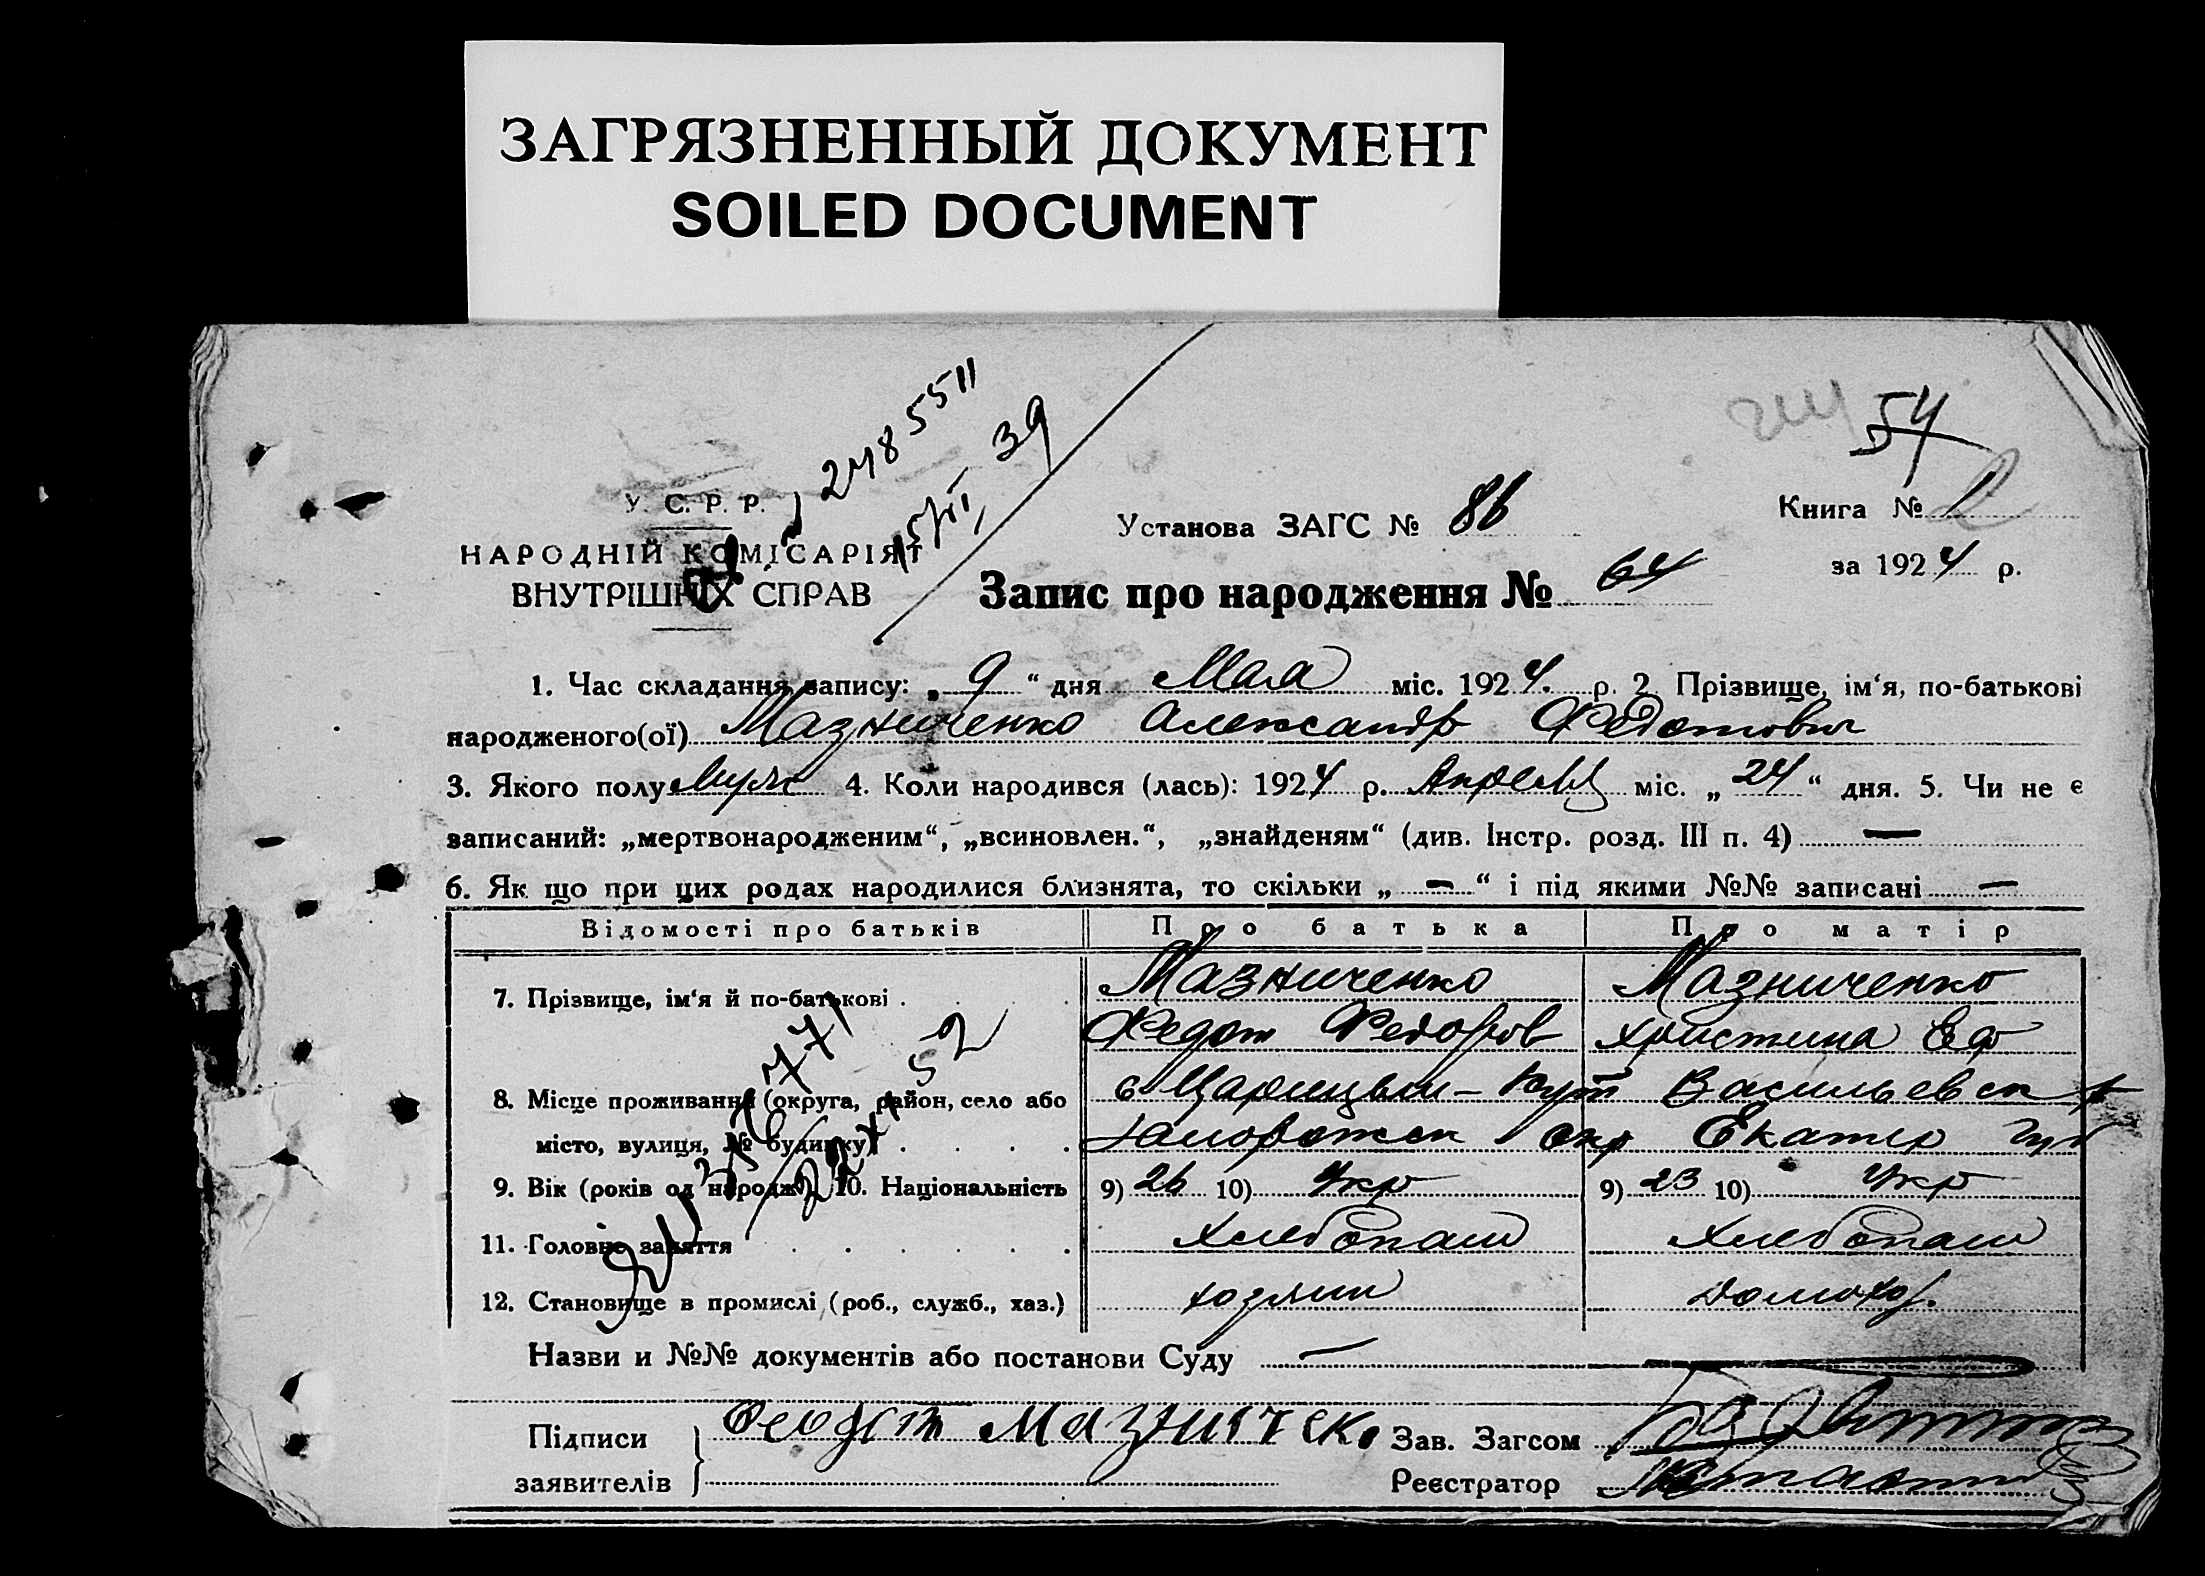 ЗАГРЯЗНЕННЫЙ ДОКУМЕНТ
SOILED DOCUMENT
54
2485511
39
У. С. Р. Р.
НАРОДНІЙ КОМІСАРІЯТ
ВНУТРІШНІХ СПРАВ
Установа ЗАГС № 86
Книга № 2
за 1924 р.
Запис про народження № 64
1. Час складання запису: „ 9 “ дня Мая міс. 1924. р. 2. Прізвище, ім‘я, по-батькові
народженого(ої) Мазниченко Александр Федотович
3. Якого полу Муж 4. Коли народився (лась): 1924 р. Апреля міс. „ 24 “ дня. 5. Чи не є
записаний: „мертвонародженим“, „всиновлен.“, „знайденям“ (див. Інстр. розд. III п. 4) —
6. Як що при цих родах народилися близнята, то скільки „ — “ і під якими №№ записані —
Відомості про батьків Про батька Про матір
7. Прізвище, ім‘я й по-батькові . Мазниченко Мазниченко
Федот Федоров Христина Еф
8. Місце проживання (округа, район, село або с Царицын-Кут Васильевск р
місто, вулиця, № будинку) . . . . Запорожск окр Екатер Губ
9. Вік (років од народж.) 10. Національність 9) 26 10) Укр 9) 23 10) Укр
11. Головне заняття . . . . . . Хлебопаш Хлебопаш
12. Становище в промислі (роб., служб., хаз.) хозяин Домохоз.
Назви и №№ документів або постанови Суду —
Підписи
заявителів
Мазниченко
Зав. Загсом
Реєстратор